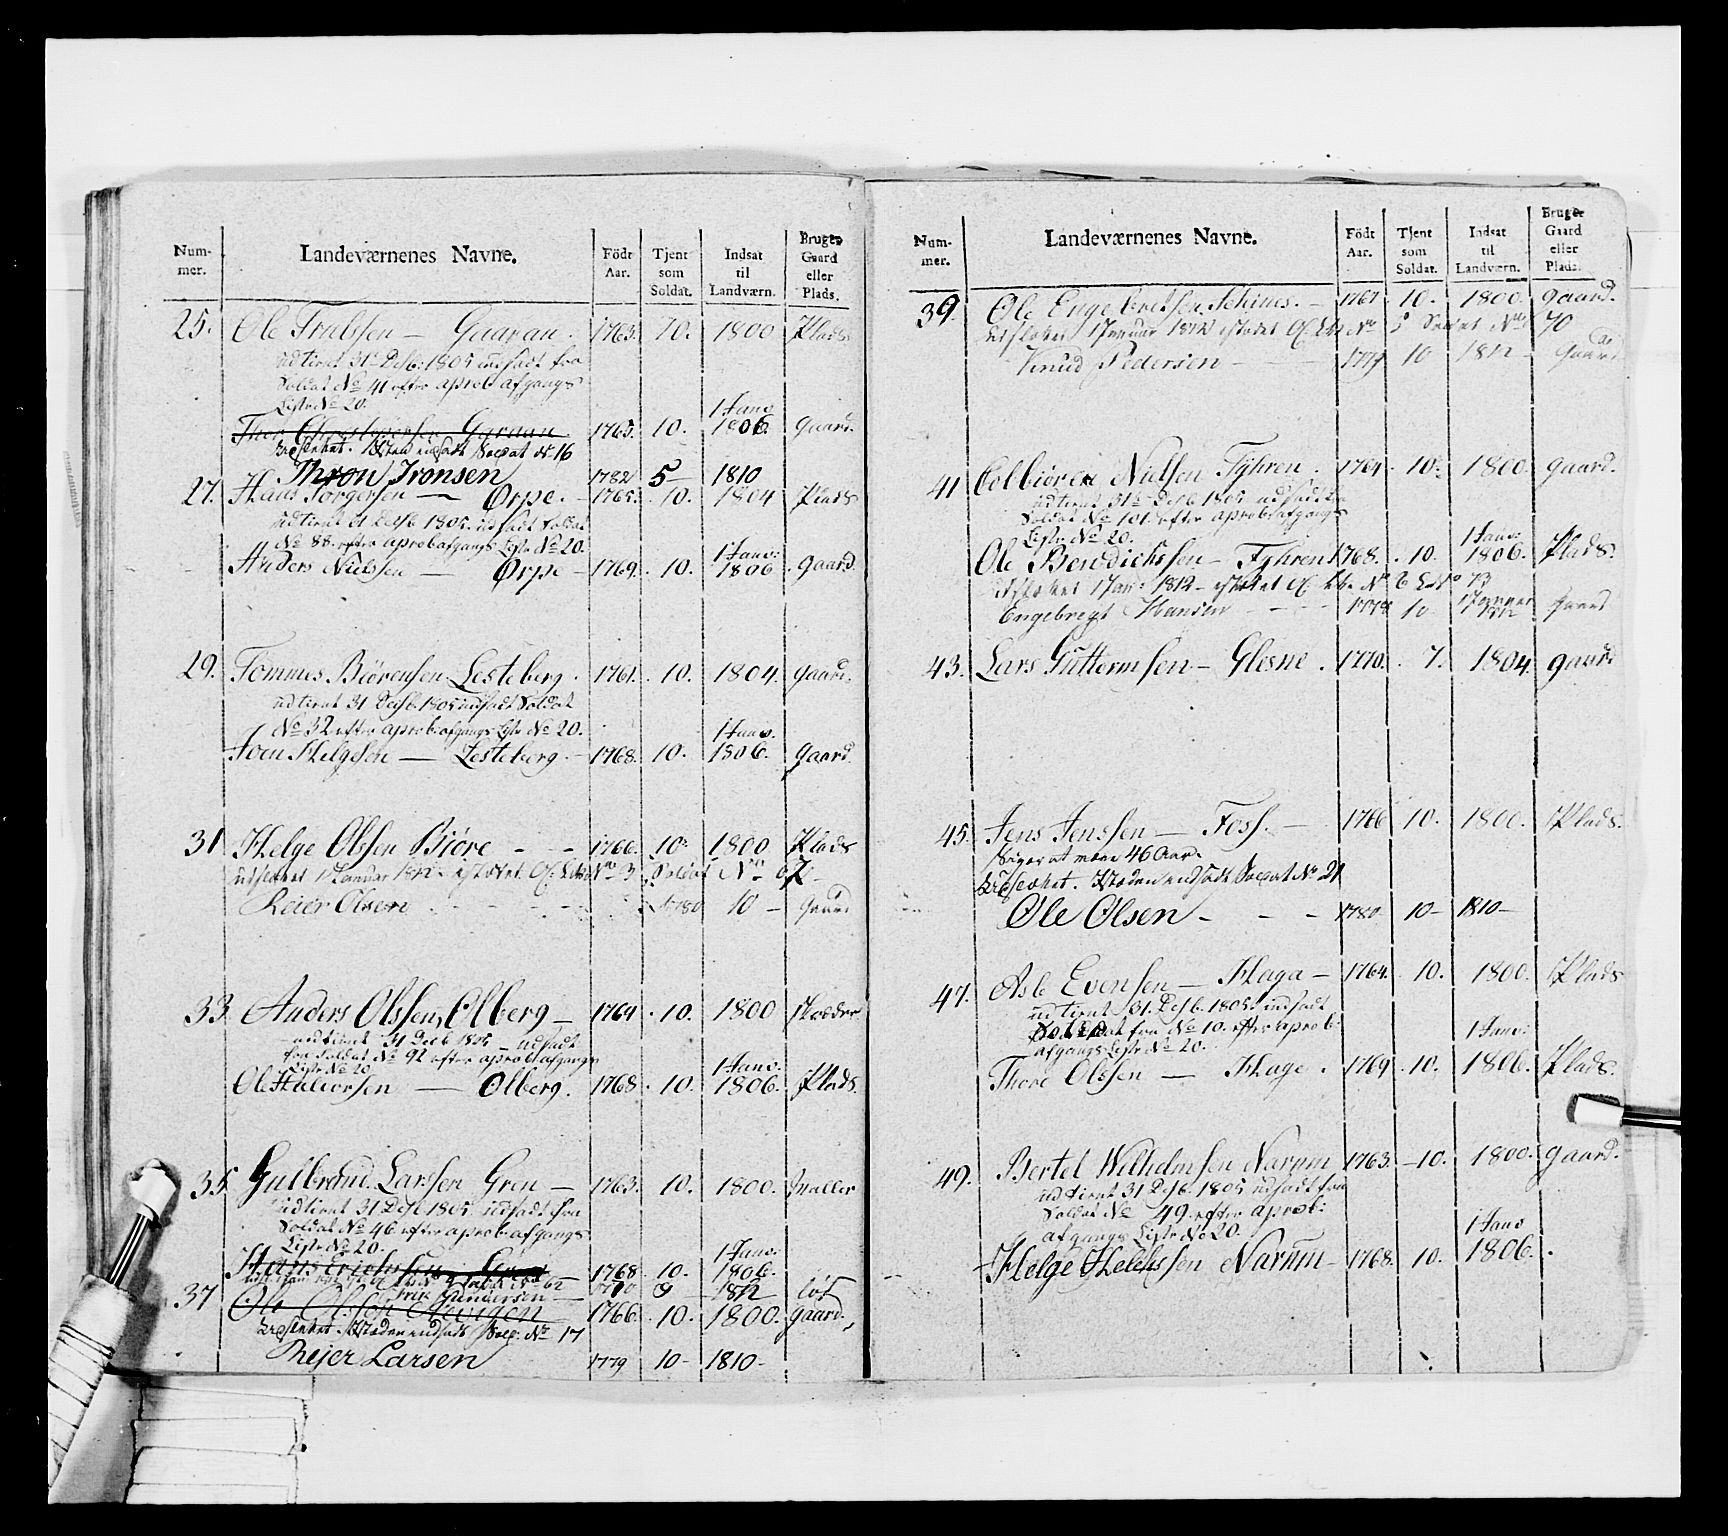 Num-mer. Landeværnenes Navne. Födt Aar. Tjent som Soldat. Indsat til Landværn. Bruger Gaard eller Plads.
25. Ole Truls&shy;sen — Gaarau. 1763. 10. 1800 Plads
udtient 31te Decb: 1805 indsadt fra
Soldat No 41 efter aprob: afgangs
Liste No 20.
1 Janv
Thor Garaau 1765. 10. 1806. gaard.
indsadt Soldat No 16
Thron Ironsen 1782 5 — 1810
27. Hans Torgersen — Ørpe. 1765. 10. 1804 Plads
udtient 31 Decb 1805. indsadt Soldat
No 88. efter aprob afgangs Liste No 20.
1 Janv:
Anders Nielsen — Ørpe 1769. 10. 1806 gaard
29. Tommes Biørensen Lesteberg. 1761. 10. 1804. gaard.
udtient 31 Decb. 1805 indsadt Soldat
No 32 efter aprob: afgangs Liste No 20.
1 Janv.
Joen Helgesen — Lesteberg. 1768. 10. 1806. gaard.
31 Helge Olssen Biøre 1766. 10. 1800 Plads
1 Januar 1812 No 3 Soldat No 67
Reier Olsen 1780 10 — Gaard
33. Anders Olssen, Olberg — 1764 10. 1800
udtient 31 Decb 1805 — indsadt
fra Soldat No 92 efter aprob afgangs
Liste No 20
1 Janv.
Ole Halvorsen — Olberg. 1768. 10. 1806. Plads.
35 Gulbrand Larssen Gren — 1763. 10. 1800.
udtient 31 Decb 1805. indsadt fra
Soldat No 46 efter aprob. afgangs
Liste No 20.
1 Janv:
Hans 1768. 10. 1806.
No 62
Erik Gundersen — 1770 9 — 1812 løs
37 Ole Olsen 1766. 10. 1800. gaard.
indsadt Sold. No 17
Reier Larsen 1779 10 — 1810 —
Num-mer. Landeværnenes Navne. Födt Aar. Tjent som Soldat. Indsat til Landværn. Bruger Gaard eller Plads.
39. Ole Engebretsen 1767 10. 1800. gaard.
1 Januar 1812 No 5 No 70
Knud Pedersen 10 1812 Gaard
41 Colbiørn Nielsen Fyhren. 1764. 10. 1800. gaard.
udtient 31te Decb 1805 indsadt fra
Soldat No 101. efter aprob: afgangs
Liste No 20.
1 Janv:
Ole Bendichssen — Fyhren 1768. 10. 1806. Plads.
1 Jan: 1812 No 73
Engebregt Hansen 10 1 Januar 1812 Gaard
43. Lars Guttormsen — Glesne. 1770. 7. 1804 gaard
45. Jens Jenssen — Foss. — 1766 10. 1800. Plads.
Siger at være 46 Aar.
indsadt Soldat No 21
Ole Olsen — 1780 10 — 1810 —
47. Asle Evensen — Haga — 1764. 10. 1800. Plads
udtient 31. Decb. 1805. indsadt
Soldat fra No 10. efter aprob:
afgangs Liste No 20.
1 Janv:
Thore Olssen — Hage. 1769 10. 1806. Plads.
49. Bertel Wilhelmsen Narum 1763. 10. 1800. gaard.
udtient 31 Decb. 1805 indsadt fra
Soldat No 49. efter aprob:
afgangs Liste No 20.
1 Janv
Helge Narum — 1768. 10. 1806.